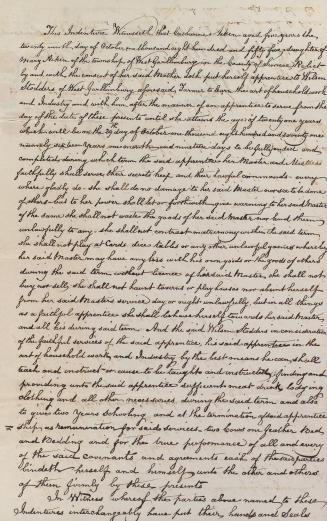 This Indenture Witnesseth that Catharine Aitken aged five years the
twenty ninth day of October one thousand eight hundred and fifty five, daughter of
Mary Aitken of the township of West Gwillimbury in the County of Simcoe
by and with the consent of her said Mother doth put herself apprentice to William
Stodders of West Gwillimbury aforesaid, Farmer to learn the art of household work
and Industry and with him after the manner of an apprentice to serve from the
day of the date of these presents until she attains the age of twenty one years
which will be on the 29 day of October one thousand eight hundred and seventy one
namely sixteen years one month and nineteen days to be fully ended and
completed, during which term the said apprentice her Master and Mistress
faithfully shall serve their secrets keep, and their lawful commands every
where gladly do. she shall do no damage to her said Master nor see it be done
of others but to her power shall let or forthwith give warning to his said Master
of the same she shall not waste the goods of her said Master nor lend them
unlawfully to any. she shall not contract matrimony within the said term
she shall not play at Cards dice tables or any other unlawful games whereby
her said Master may have any loss with his own goods or the goods of others
during the said term without licence of her said Master, she shall not
buy nor sell, she shall not haunt taverns or play houses nor absent herself
from her said Masters service day or night unlawfully, but in all things
as a faithful apprentice she shall behave herself towards her said Master
and all his during said term. And the said William Stodders in consideration
of the faithful services of the said apprentice, his said apprentice in the
art of household work and Industry by the best means he can, shall
teach and instruct or cause to be taught and instructed, finding and
providing unto the said apprentice sufficient meat drink lodging
clothing and all other necessaries during the said term and also
to give two Years Schooling and at the termination of said apprentice
ship as remuneration for said services, two Cows one feather Bed
and Bedding and for the true performance of all and every
of the said covenants and agreements each of the parties
bindeth herself and himself unto the other and others
of them firmly by these presents
In Witness whereof the parties above named to these
Indentures interchangeably have put their hands and Seals